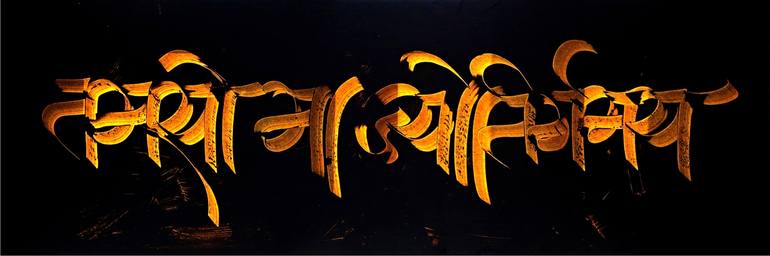 तमसो मा ज्योतिर्गमय